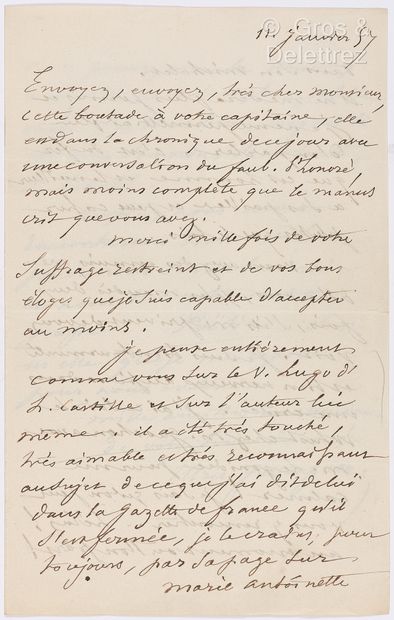 © Gros &
Delettrez
11. janvier 57
Envoyez, envoyez, très cher monsieur,
cette boutade à votre capitaine, elle
est dans la chronique de ce jour avec
une conversation du faub. St honoré
mais moins complète que le manus
crit que vous avez.
merci mille fois de votre
suffrage restreint et de vos bons
éloges que je suis capable d'accepter
au moins.
je pense entièrement
comme vous sur le V. hugo d'
h. Castille et sur l'auteur lui
même. il a été très touché,
très aimable et très reconnaissant
au sujet de ce que j'ai dit de lui
dans la Gazette de france qu'il
s'est fermée, je le crains, pour
toujours, par sa page sur
marie antoinette